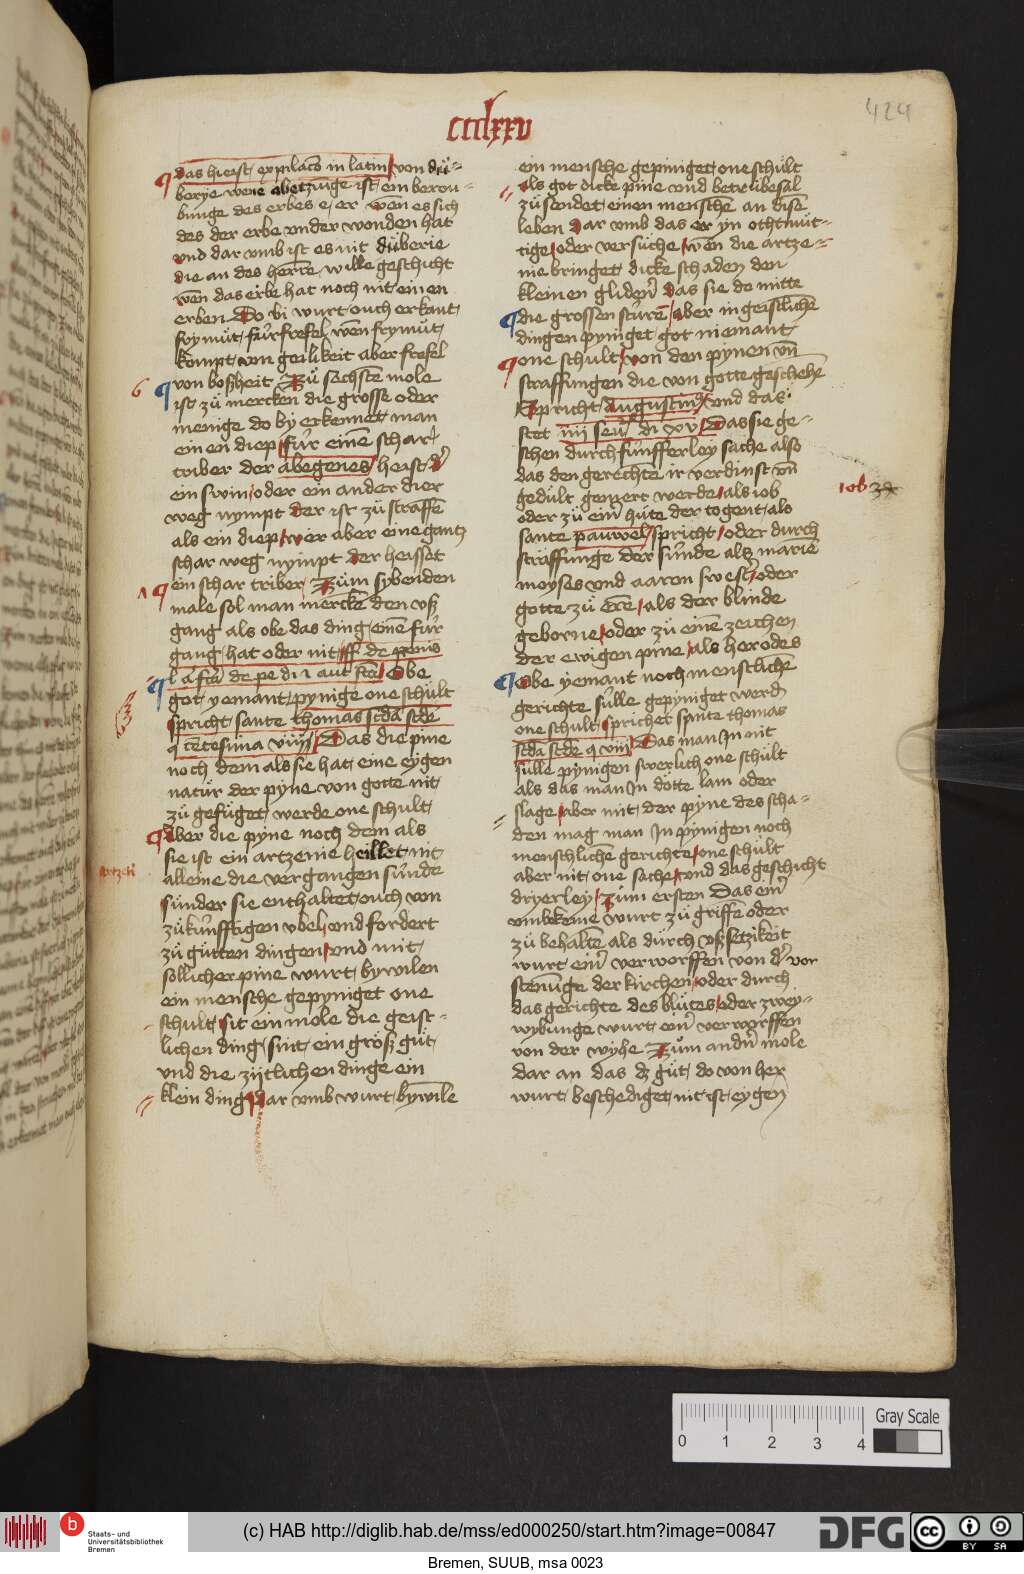 ccclxxv
424
das hieist expilaco in latin von dü-
berye wene abetzunge ist ein berou-
bunge des erbes e er wen es sich
des der erbe under wonden hat
und dar umb ist es nit düberie
die an des herre wille geschicht
wen das erbe hat noch nit einen
erben Do bi wurt ouch erkant
frymüt für frefel wen frymüt
kompt von geilikeit aber frefel
6 von boßheit Zü sechsten mole
ist zü mercken die grosse oder
menige do by erkennet man
einen diep für eine schar
triber der abegenes heist
ein swin oder ein ander dier
weg nympt der ist zü straffe
als ein diep wer aber eine gantz
schar weg nympt der heisset
ein schar triber Züm sybenden
male sol man mercke den usz
gang als obe das ding eine für
gang hat oder nit ff de penis
Obe
got yemant pynige one schült
spricht sante thomas scda scde
q cetesima viij Das die pine
noch dem als sie hat eine eygen
natür der pyne von gotte nit
zü gefüget werde one schult
Aber die pyne noch dem als
sie ist ein artzenie heillet nit
artzeni
alleine die vergangen sünde
sünder sie enthaltet ouch von
zükünfftigen übel und fordert
zü gütten dingen und mit
sollicher pine wurt bywilen
ein mensche gepyniget one
schult sit ein mole die geist-
lichen ding sint ein grösz güt
und die zijtlichen dinge ein
klein ding Dar umb wurt bywile
ein mensche gepiniget one schült
als got dicke pine und betrübesal
züsendet einen mensche an dise
leben Dar umb das er yn othtmüt-
tige oder versüche wen die artze-
nie bringet dicke schaden den
kleinen gliden das sie do mitte
die grossen sture aber in geistliche
dingen pyniget got niemant
one schult von den pynen un
straffungen die von gotte gescheh
Spricht Augustin und das
stet iiij sen di xv Das sie ge-
schen durch fünfferloy sache also
das den gerechte ir verdinst un
gedült gemert werde als iob
iob
oder zü ein hüte der togent als
sante pauwel spricht oder durch
straffunge der sünde als marie
moyses und aaron swest oder
gotte zü ere als der blinde
geborne oder zü eine zeichen
der ewigen pine als herodes
Obe yemant noch menscliche
gerichte sülle gepyniget werd
one schult sprichet sante thomas
scda scde q viij Das man In nit
sülle pynigen swerlich one schült
als das man In dötte lam oder
slage aber mit der pyne des scha-
den mag man In pynigen noch
menschliche gerichte one schült
aber nit one sache und das geschicht
dryerley Züm ersten Das ein
unbekeme wurt zü griffe oder
zü behalte als dürch usz setzikeit
wurt ein verworffen von d vor
stenuge der kirchen oder durch
das gerichte des blütes oder zwey-
wybunge wurt ein verworffen
von der wyhe Züm andn mole
dar an das dz güt do von her
wurt beschediget nit ist eygen
0 1 2 3 4
Gray Scale
b
Staats- und
Universitätsbibliothek
Bremen
(c) HAB http://diglib.hab.de/mss/ed000250/start.htm?image=00847
DFG
cc
BY SA
Bremen, SUUB, msa 0023